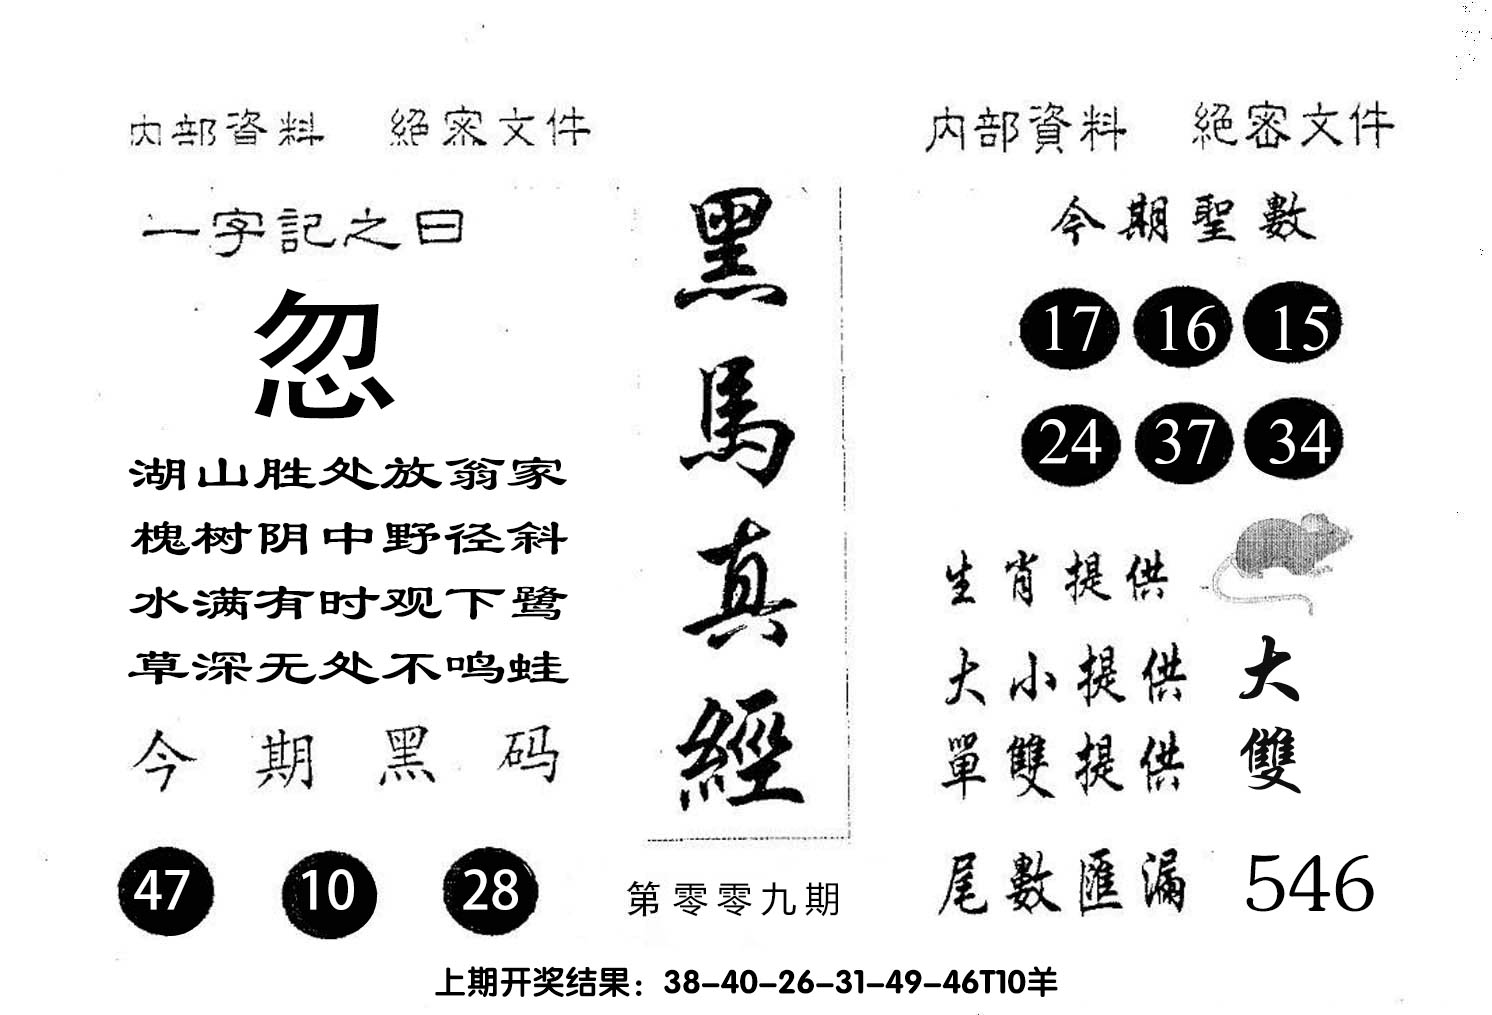 内部資料 絕密文件
一字記之曰
忽
湖山胜处放翁家
槐树阴中野径斜
水满有时观下鹭
草深无处不鸣蛙
今期黑码
47 10 28
黑馬真經
第零零九期
内部資料 絕密文件
今期聖數
17 16 15
24 37 34
生肖提供
大小提供 大
單雙提供 雙
尾數匯漏 546
上期开奖结果：38-40-26-31-49-46T10羊